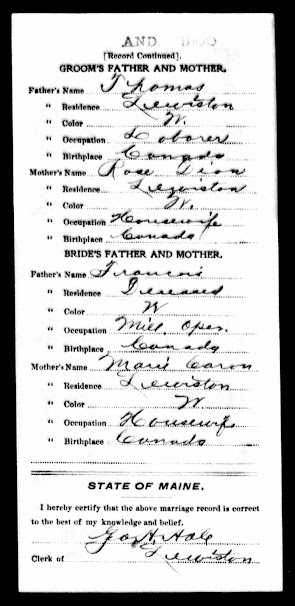 AND 1900
[Record Continued].
GROOM'S FATHER AND MOTHER.
Father's Name Thomas
" Residence Lewiston
" Color W.
" Occupation Laborer
" Birthplace Canada
Mother's Name Rose Dion
" Residence Lewiston
" Color W.
" Occupation Housewife
" Birthplace Canada
BRIDE'S FATHER AND MOTHER.
Father's Name Francois
" Residence Deceased
" Color W
" Occupation Mill Oper.
" Birthplace Canada
Mother's Name Marie Caron
" Residence Lewiston
" Color W
" Occupation Housewife
" Birthplace Canada
STATE OF MAINE.
I hereby certify that the above marriage record is correct
to the best of my knowledge and belief.
Geo A Hale
Clerk of Lewiston